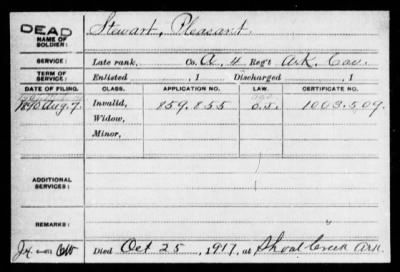 DEAD
NAME OF SOLDIER: Stewart, Pleasant
SERVICE: Late rank, Co. A, 4 Reg't Ark. Cav.
TERM OF SERVICE: Enlisted , 1 Discharged , 1
DATE OF FILING. CLASS. APPLICATION NO. LAW. CERTIFICATE NO.
1890 Aug. 7. Invalid, 859.855 1003.509
Widow,
Minor,
ADDITIONAL SERVICES:
REMARKS:
Died Oct 25, 1917, at Shoal Creek Ark.